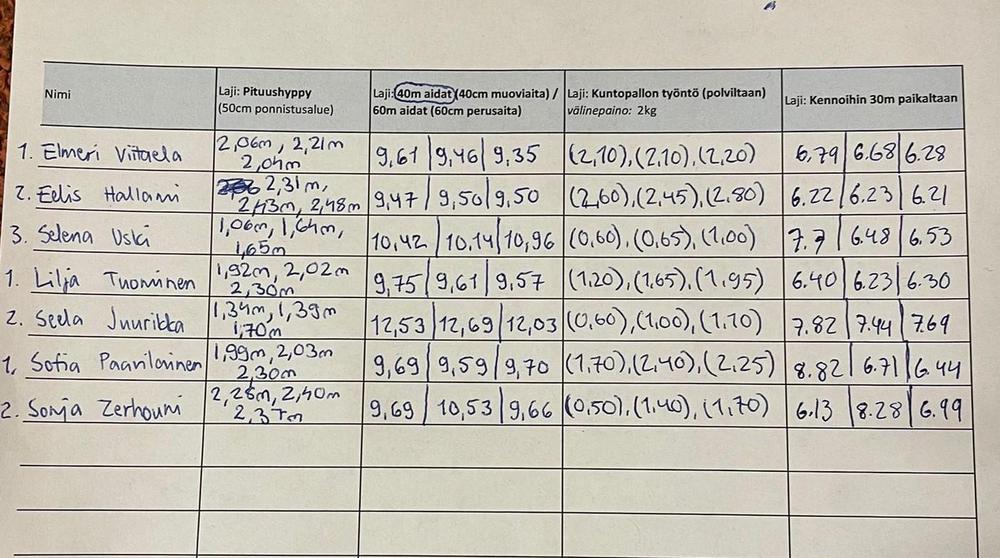 Nimi
Laji: Pituushyppy
(50cm ponnistusalue)
Laji: 40m aidat (40cm muoviaita) /
60m aidat (60cm perusaita)
Laji: Kuntopallon työntö (polviltaan)
välinepaino: 2kg
Laji: Kennoihin 30m paikaltaan
1. Elmeri Viitaela
2,06m, 2,21m
2,04m
9,61 | 9,46 | 9,35
(2,10), (2,10), (2,20)
6.79 | 6.68 | 6.28
2. Eelis Hallami
2,31m,
2,43m, 2,48m
9,47 | 9,50 | 9,50
(2,60), (2,45), (2.80)
6.22 | 6.23 | 6.21
3. Selena Uski
1,06m, 1,64m,
1,65m
10,42 | 10,14 | 10,96
(0,60), (0,65), (1,00)
7.7 | 6.48 | 6.53
1. Lilja Tuominen
1,92m, 2,02m
2,30m
9,75 | 9,61 | 9,57
(1,20), (1,65), (1,95)
6.40 | 6.23 | 6.30
2. Seela Juurikka
1,34m, 1,39m
1,70m
12,53 | 12,69 | 12,03
(0,60), (1,00), (1,10)
7.82 | 7.44 | 7.69
1. Sofia Paanilainen
1,99m, 2,03m
2,30m
9,69 | 9,59 | 9,70
(1,70), (2,40), (2,25)
8.82 | 6.71 | 6.44
2. Sonja Zerhouni
2,28m, 2,40m
2,37m
9,69 | 10,53 | 9,66
(0,50), (1,40), (1,70)
6.13 | 8.28 | 6.99